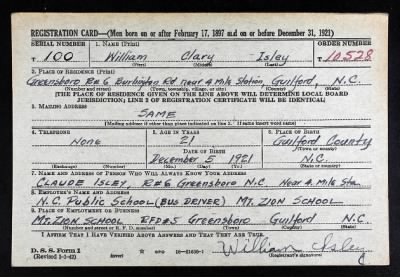 REGISTRATION CARD—(Men born on or after February 17, 1897 and on or before December 31, 1921)
SERIAL NUMBER 1. NAME (Print) ORDER NUMBER
T 100 William Clary Isley T 10,528
(First) (Middle) (Last)
2. PLACE OF RESIDENCE (Print)
Greensboro R#6 Burlington Rd near 4 Mile Station, Guilford, N.C.
(Number and street) (Town, township, village, or city) (County) (State)
[THE PLACE OF RESIDENCE GIVEN ON THE LINE ABOVE WILL DETERMINE LOCAL BOARD
JURISDICTION; LINE 2 OF REGISTRATION CERTIFICATE WILL BE IDENTICAL]
3. MAILING ADDRESS
SAME
[Mailing address if other than place indicated on line 2. If same insert word same]
4. TELEPHONE 5. AGE IN YEARS 6. PLACE OF BIRTH
NONE 21 Guilford County
DATE OF BIRTH (Town or county)
December 5 1921 N.C.
(Exchange) (Number) (Mo.) (Day) (Yr.) (State or country)
7. NAME AND ADDRESS OF PERSON WHO WILL ALWAYS KNOW YOUR ADDRESS
CLAUDE ISLEY R#6 Greensboro N.C. Near 4 Mile Sta.
8. EMPLOYER'S NAME AND ADDRESS
N.C. Public School (BUS DRIVER) MT. ZION SCHOOL
9. PLACE OF EMPLOYMENT OR BUSINESS
MT. ZION SCHOOL RFD#5 Greensboro Guilford N.C.
(Number and street or R. F. D. number) (Town) (County) (State)
I AFFIRM THAT I HAVE VERIFIED ABOVE ANSWERS AND THAT THEY ARE TRUE.
D. S. S. Form 1
(Revised 1-1-42) (over) GPO 16—21630-1
William Isley
(Registrant's signature)